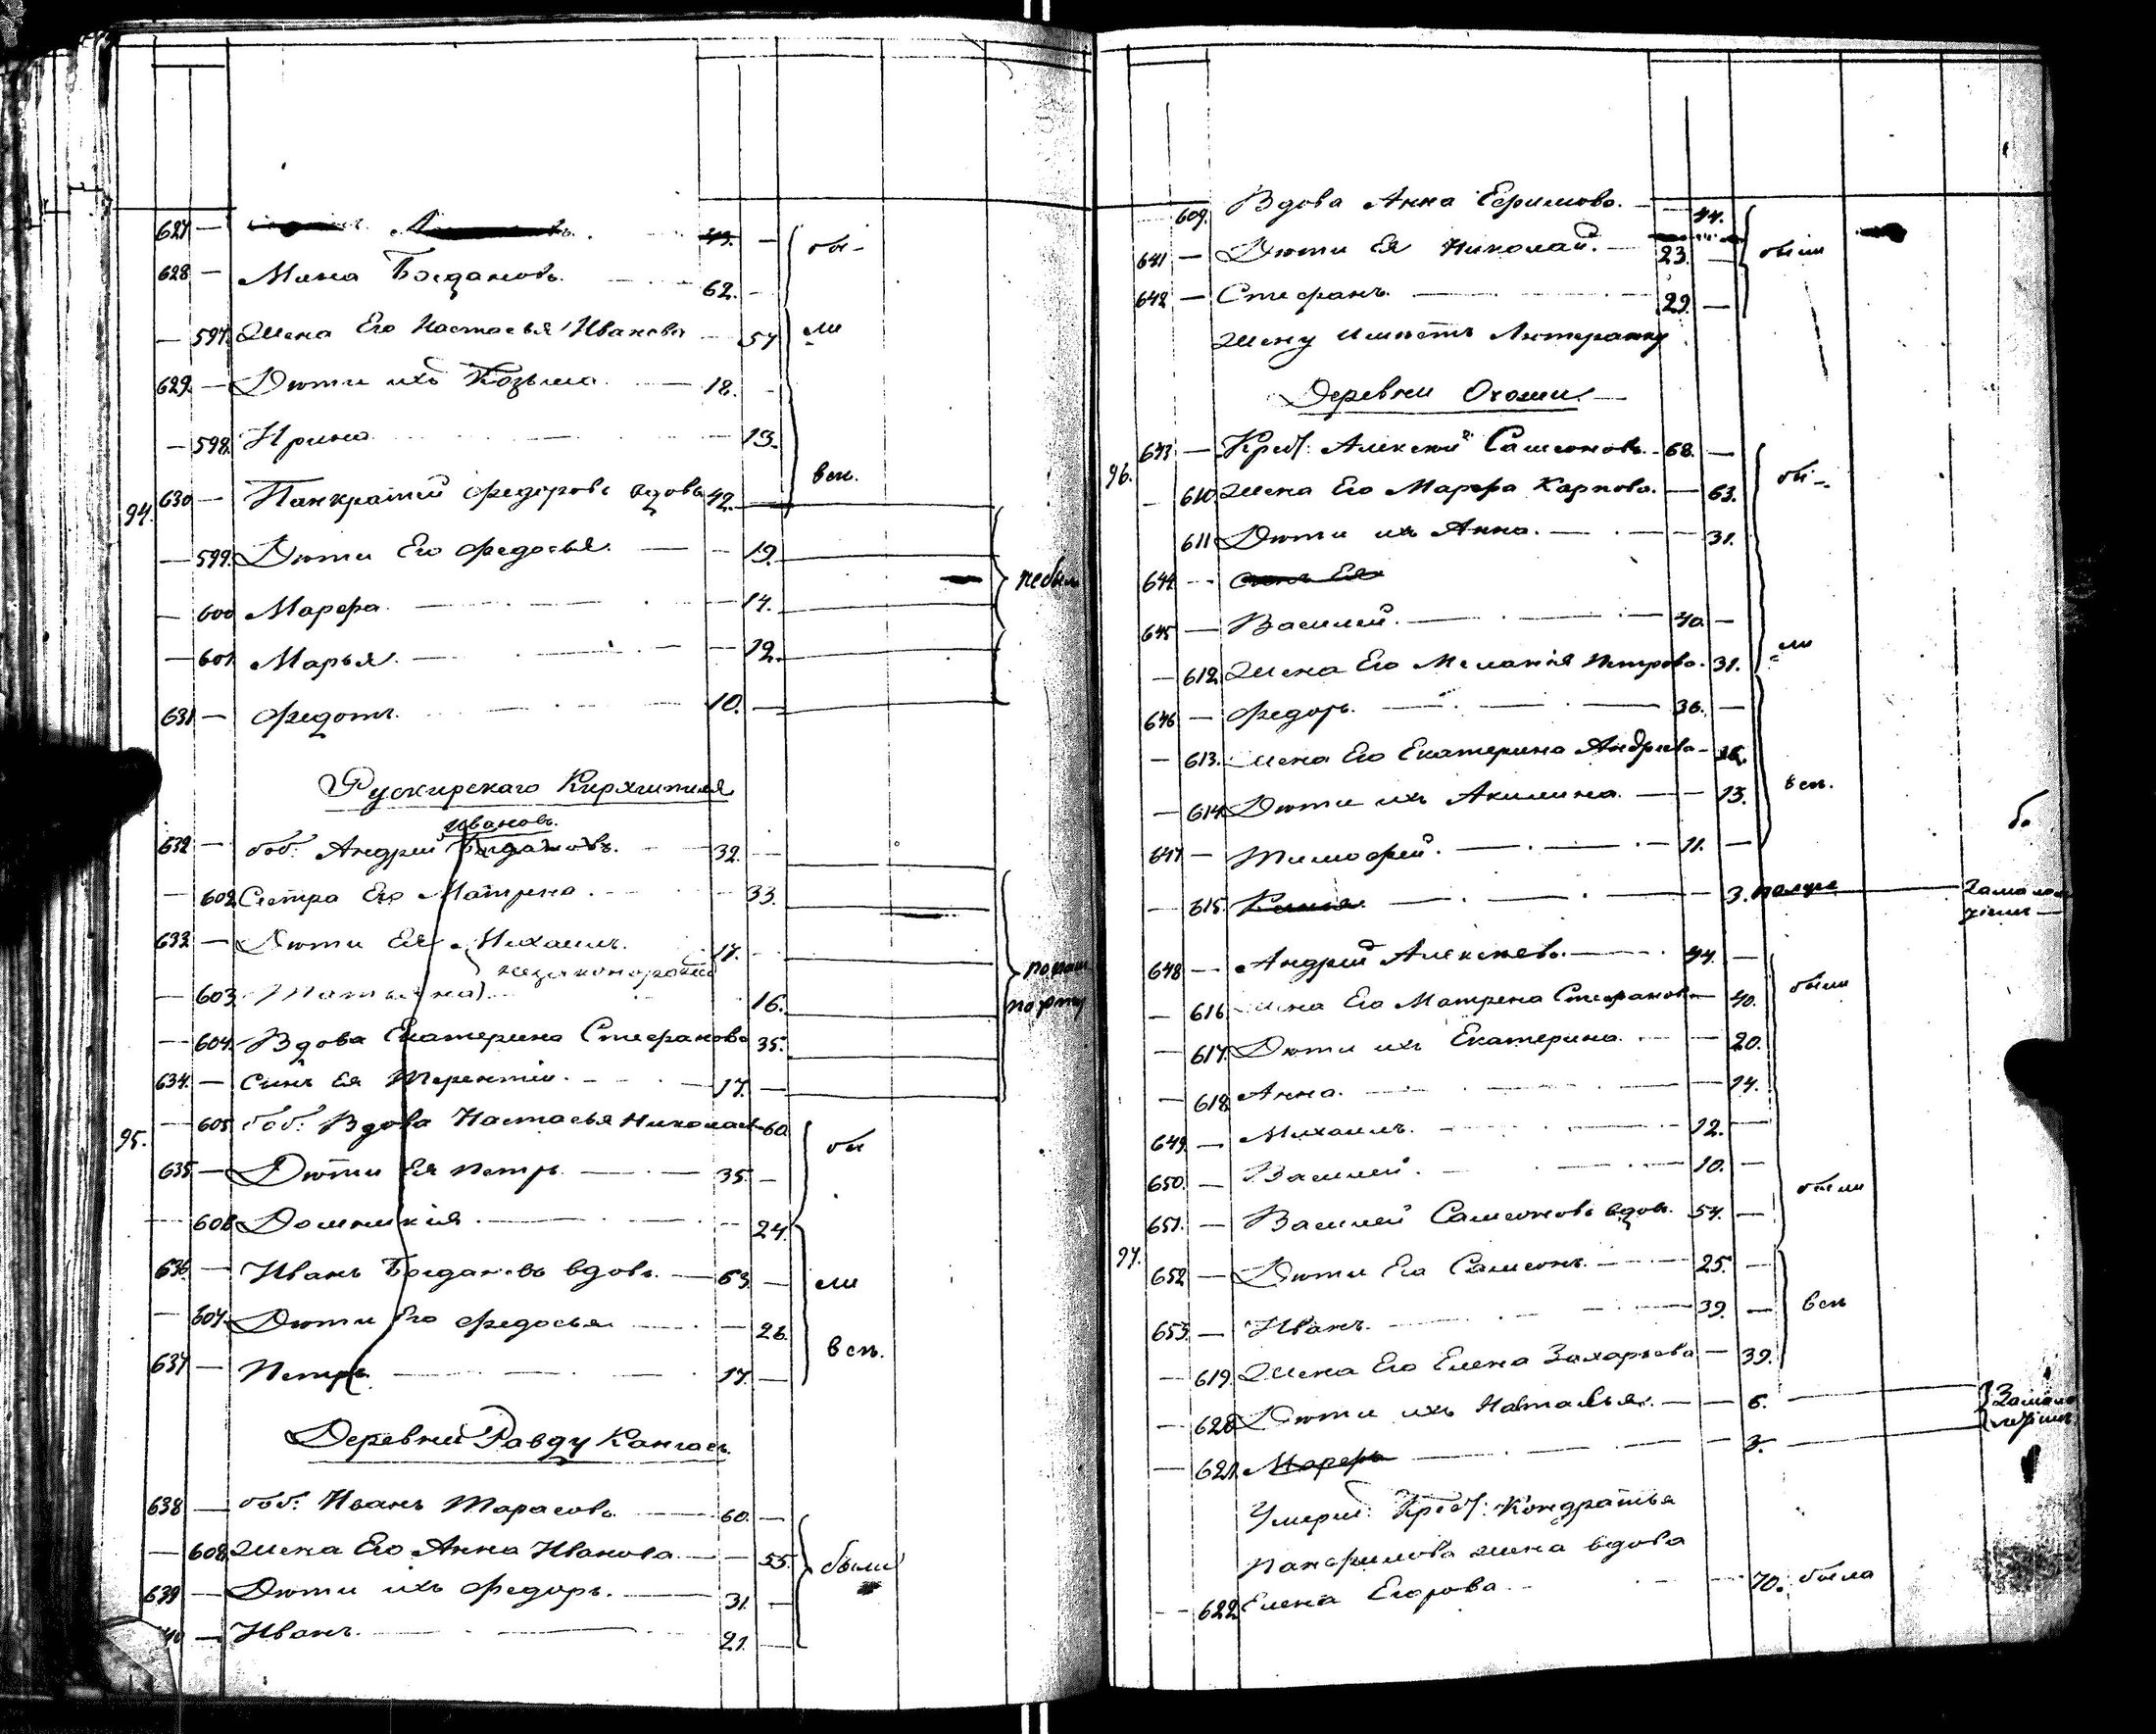 627 — 43. — бы-
628 — Мина Богдановъ. 62. —
— 597. Жена Его Настасья Иванова 57 ли
629. — Дѣти ихъ Козьма. 18. —
— 598. Ирина 13.
94. 630 — Панкратий Федоровъ вдовъ 42. — всп.
— 599. Дѣти Его Федосья. 19.
— 600 Марфа. 14. небыли
— 601. Марья. 12.
631. — Федотъ. 10. —
Рускирскаго Кирхшпиля
Ивановъ.
632 — боб: Андрей Богдановъ. 32. —
— 602 Сестра Его Матрена. 33.
633 — Дѣти Ея Михаилъ. 17. —
незаконорожд
— 603. Татьяна 16.
— 604. Вдова Екатерина Стефанова 35.
634. — Сынъ Ея Терентій. 17. —
95. — 605. боб: Вдова Настасья Николаев 60
635 — Дѣти Ея Петръ 35. — бы
— 606 Домникія 24.
636. — Иванъ Богдановъ вдовъ. 63. — ли
— 607. Дѣти Его Федосья 26.
637 — Петръ 17. — всп.
Деревни Равду Кангас
638 — боб: Иванъ Тарасовъ 60. —
— 608. Жена Его Анна Иванова. 55. были
639 — Дѣти ихъ Федоръ. 31. —
40 — Иванъ 21. —
609. Вдова Анна Ефимова. 44.
641 — Дѣти Ея Николай. 23. — были
642 — Стефанъ. 29. —
Жену имѣетъ Лютеранку
Деревни
96. 643 — Крест: Алексей Самсоновъ. 68. —
— 610 Жена Его Марфа Карпова. 63. бы-
611 Дѣти ихъ Анна. 31.
644 — Сынъ Ея
645 — Василей. 40 —
— 612. Жена Его Меланія Петрова. 31. ли
646 — Федоръ. 36. —
— 613. Жена Его Екатерина Андреева
— 614 Дѣти ихъ Акилина. 13. всп.
647 — Тимофей. 11. —
— 615. 3.
648 — Андрей Алексеевъ. 44. —
— 616 Жена Его Матрена Стефанов 40. были
— 617. Дѣти ихъ Екатерина. 20.
— 618 Анна. 14.
649. — Михаилъ. 12. —
650. — Василей. 10. —
651. — Василей Самсоновъ вдов. 57. — были
97. 652 — Дѣти Его Самсонъ. 25. —
653. — Иванъ. 39. — всп
— 619. Жена Его Елена Захарьева 39.
— 620 Дѣти ихъ Наталья. 6.
— 621. Марфа 3.
Умерш: Крест: Кондратья
Панфилова жена вдова
— 622 Елена Егорова. 70. была